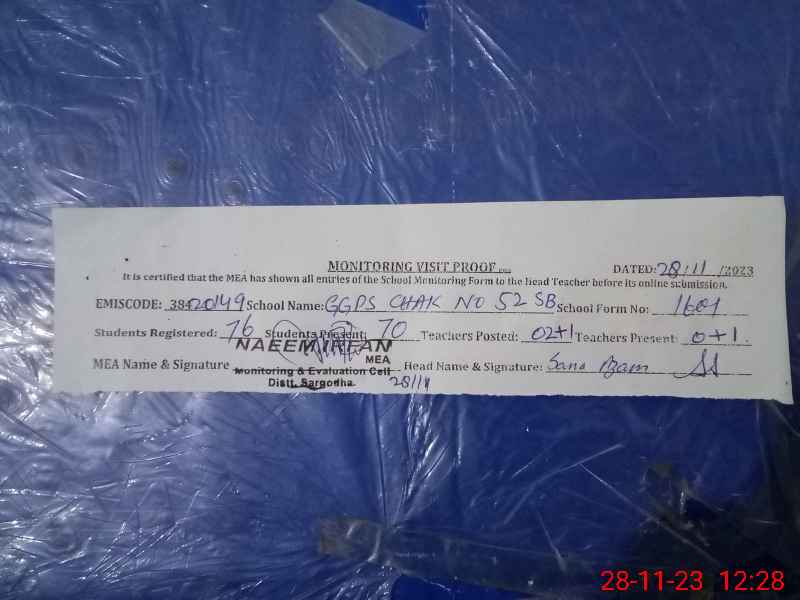 MONITORING VISIT PROOF DATED: 28/11/2023
It is certified that the MEA has shown all entries of the School Monitoring Form to the Head Teacher before its online submission.
EMISCODE: 38420149 School Name: GGPS CHAK NO 52 SB School Form No: 1601
Students Registered: 76 Students Present: 70 Teachers Posted: 02+1 Teachers Present: 0+1.
NAEEM IRFAN
MEA
MEA Name & Signature Head Name & Signature: Sana Azam
Monitoring & Evaluation Cell
Distt. Sargodha
28/11
28-11-23 12:28